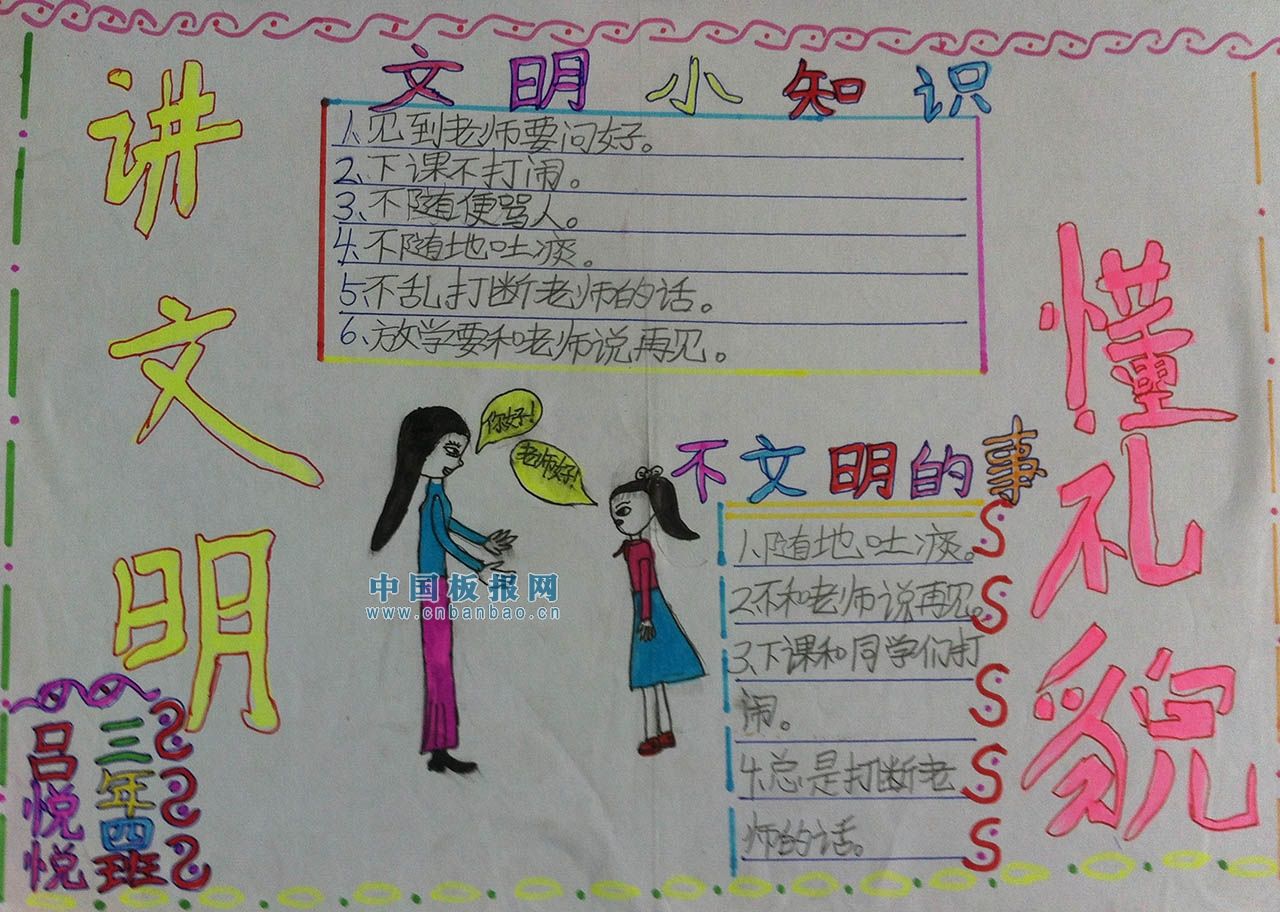 讲文明
文明小知识
1、见到老师要问好。
2、下课不打闹。
3、不随便骂人。
4、不随地吐痰。
5、不乱打断老师的话。
6、放学要和老师说再见。
懂礼貌
你好!
老师好!
不文明的事
1、随地吐痰。
2、不和老师说再见。
3、下课和同学们打
闹。
4、总是打断老
师的话。
中国板报网
www.cnbanbao.cn
三年四班
吕悦悦